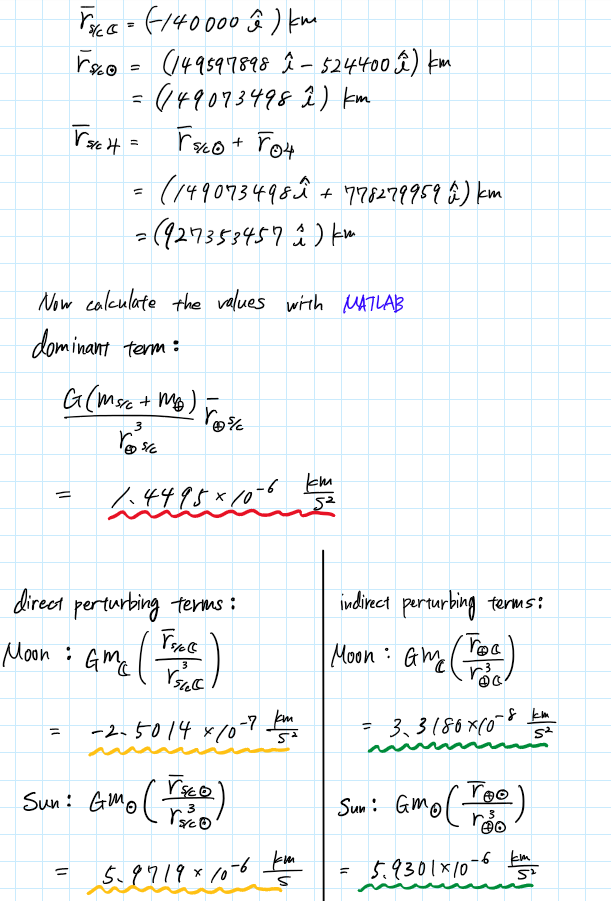 r̄ₛ/c☾ = (-140000 î) km
r̄ₛ/c☉ = (149597898 î - 524400 î) km
= (149073498 î) km
r̄ₛ/c♃ = r̄ₛ/c☉ + r̄☉♃
= (149073498 î + 778279959 î) km
= (927353457 î) km
Now calculate the values with MATLAB
dominant term :
G(mₛ/c + m⊕) / r³⊕ₛ/c r̄⊕ₛ/c
= 1.4495 × 10⁻⁶ km/s²
direct perturbing terms :
Moon : Gm☾ ( r̄ₛ/c☾ / r³ₛ/c☾ )
= -2.5014 × 10⁻⁷ km/s²
Sun : Gm☉ ( r̄ₛ/c☉ / r³ₛ/c☉ )
= 5.9719 × 10⁻⁶ km/s
indirect perturbing terms :
Moon : Gm☾ ( r̄⊕☾ / r³⊕☾ )
= 3.3186 × 10⁻⁸ km/s²
Sun : Gm☉ ( r̄⊕☉ / r³⊕☉ )
= 5.9301 × 10⁻⁶ km/s²